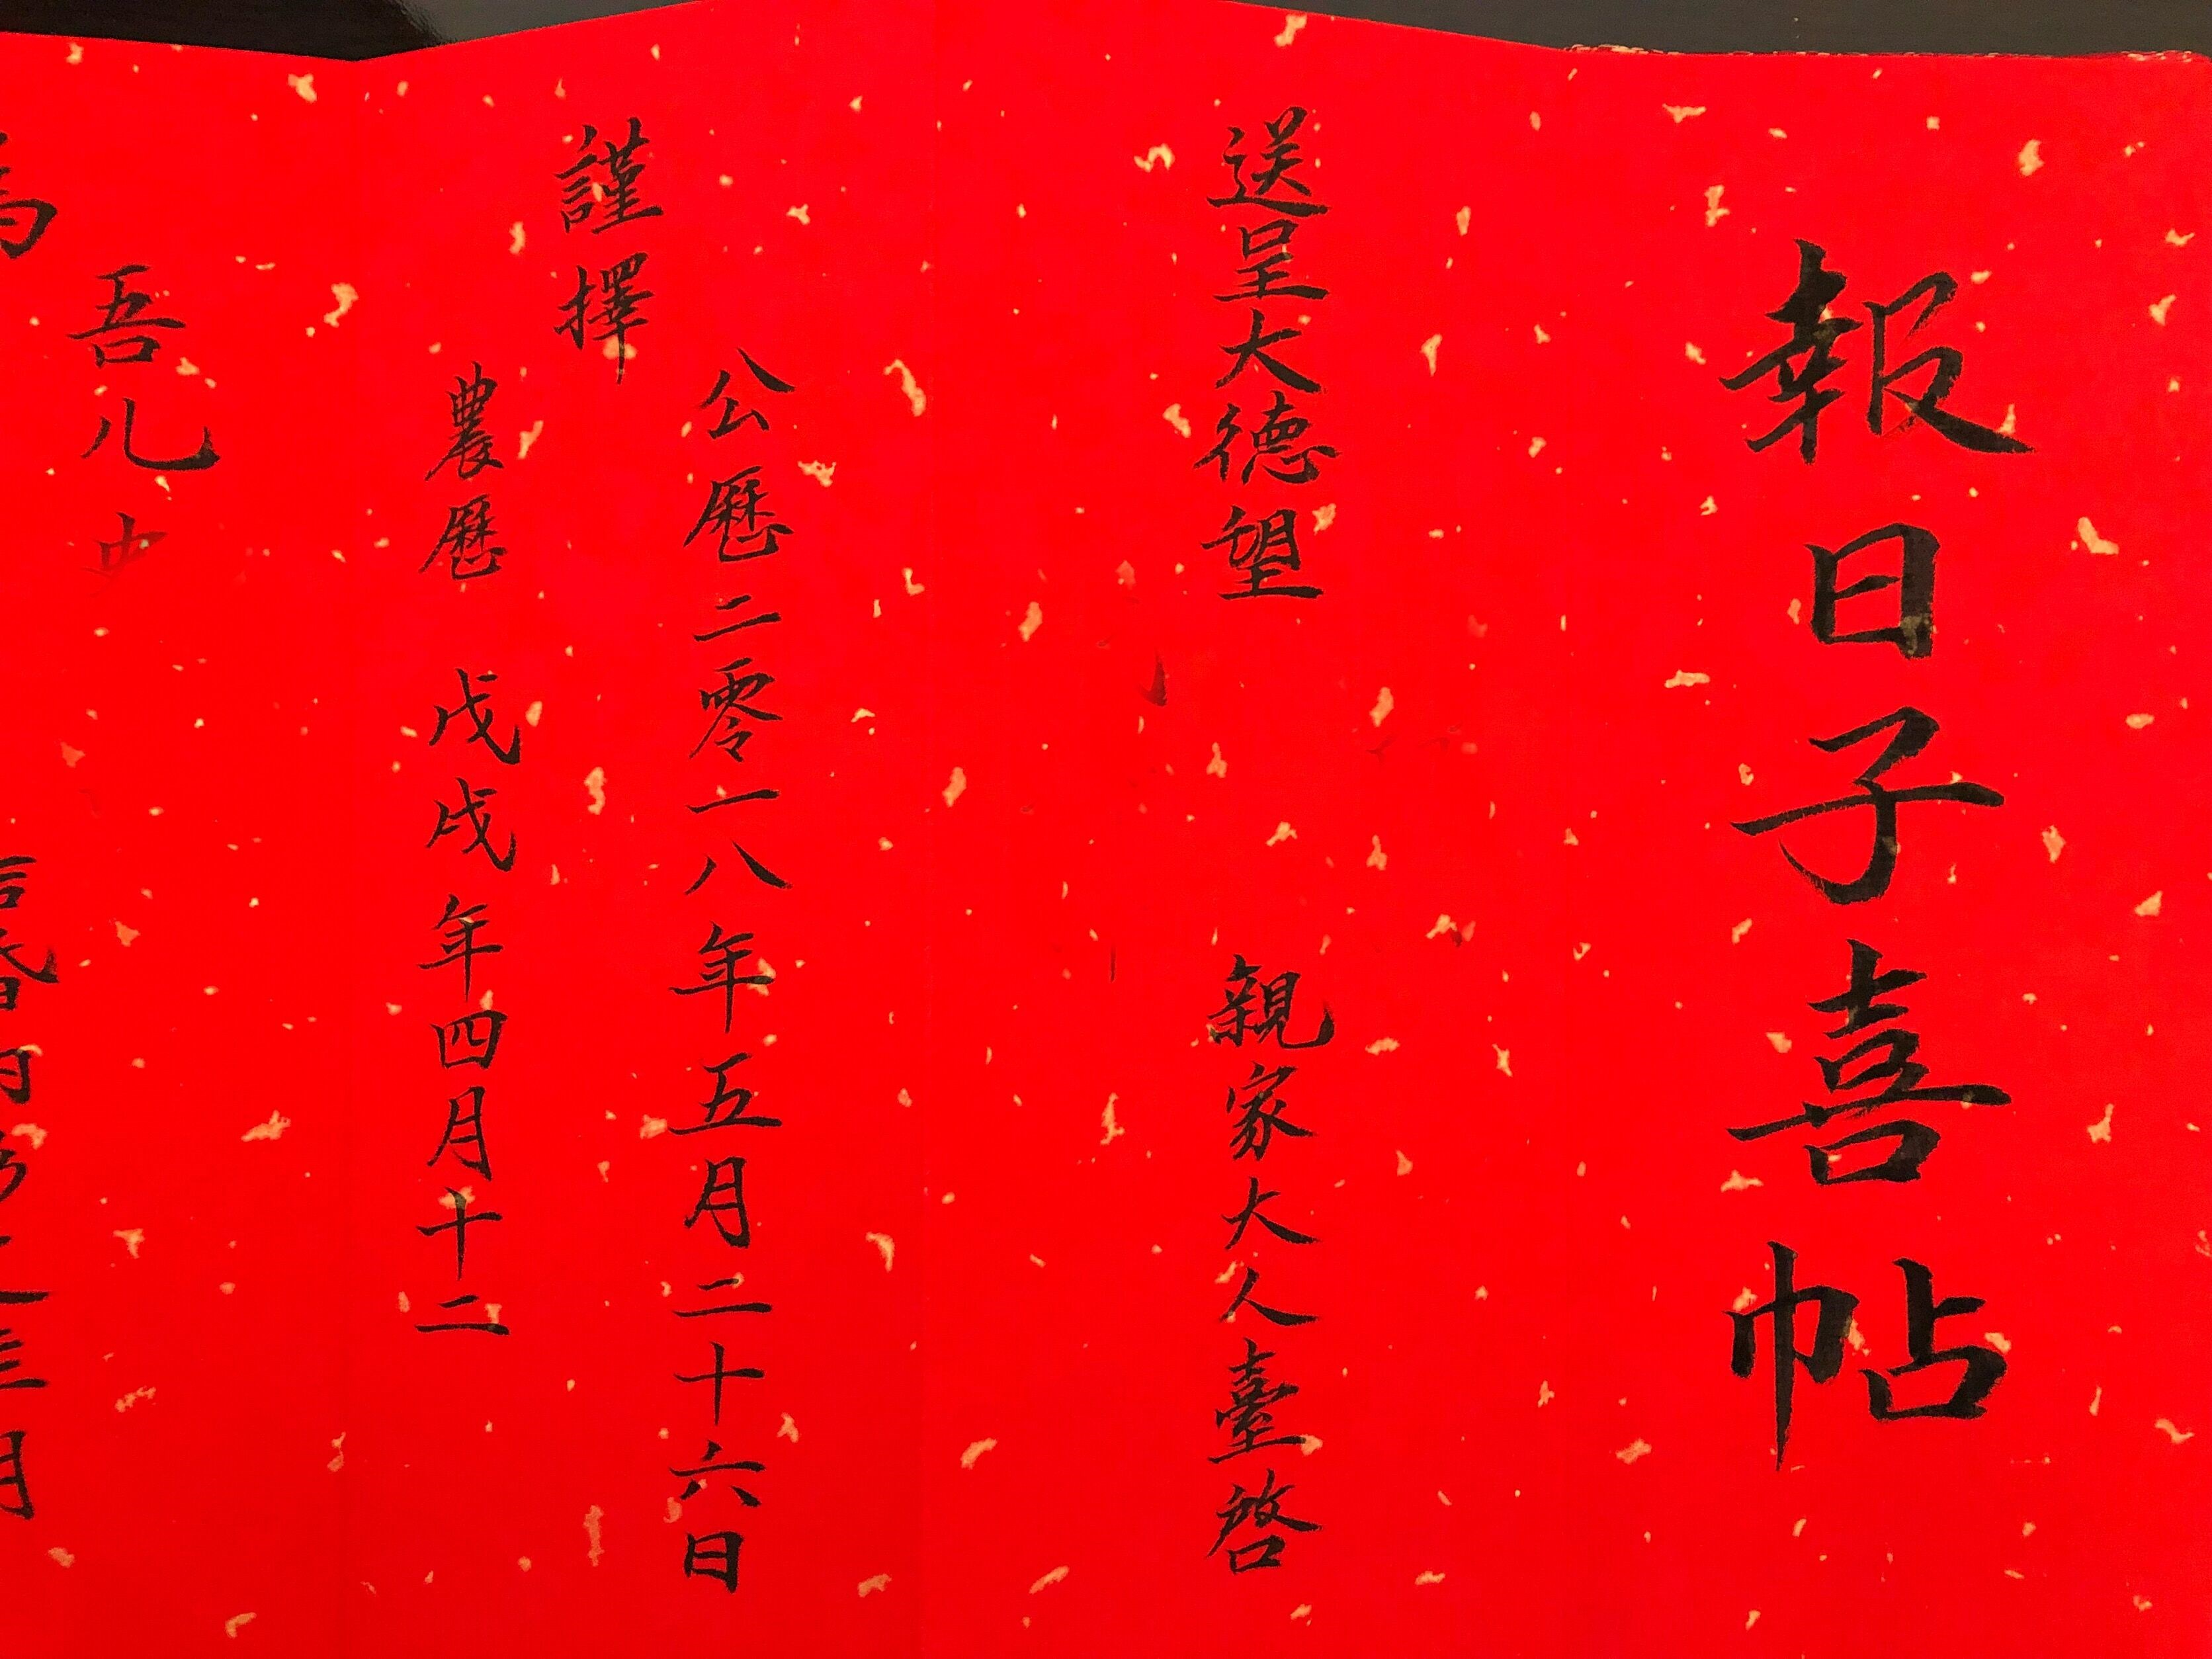 報日子喜帖
送呈大德望 親家大人臺啓
謹擇
公曆二零一八年五月二十六日
農曆 戊戌年四月十二
吾儿